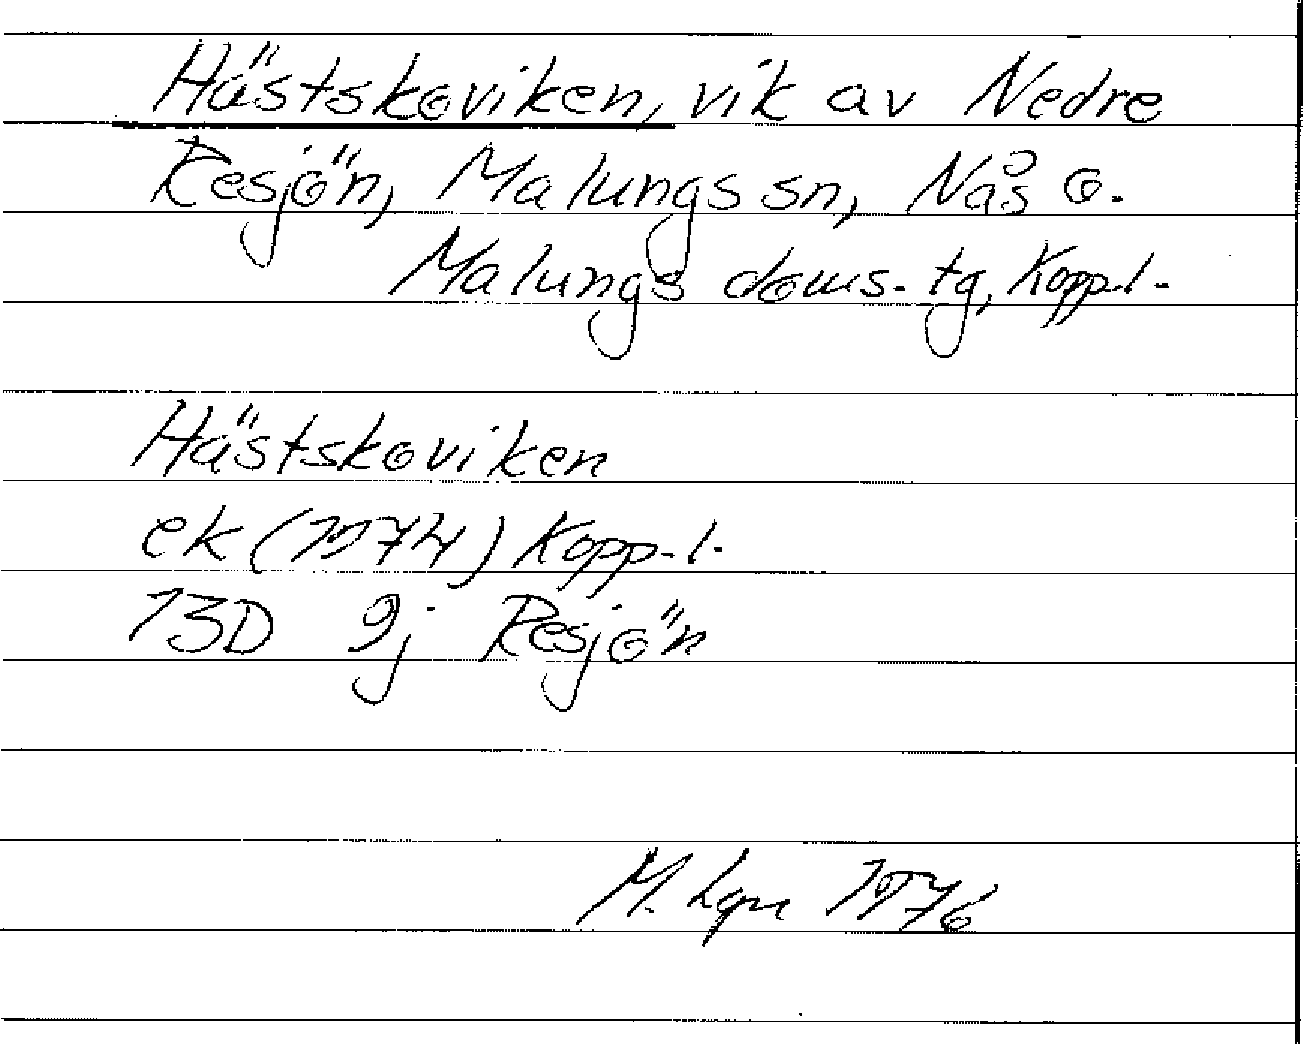 Hästskoviken, vik av Nedre
Resjön, Malungs sn, Nås o.
Malungs doms. tg, Kopp.l.
Hästskoviken
ek (1974) Kopp.l.
13D 9j Resjön
M. Lgn 1976